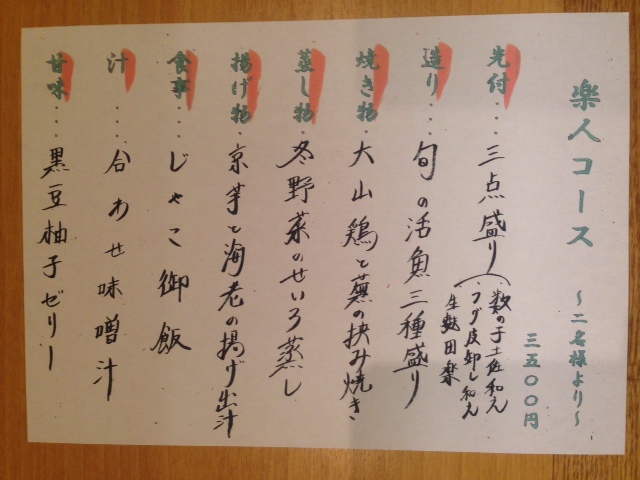 楽人コース
〜二名様より〜
三五〇〇円
先付・・・三点盛り(数の子土佐和え
フグ皮卸し和え
生麩田楽
造り・・・旬の活魚三種盛り
焼き物・大山鶏と蕪の挟み焼き
蒸し物・冬野菜のせいろ蒸し
揚げ物・京芋と海老の揚げ出汁
食事・・・じゃこ御飯
汁・・・・合わせ味噌汁
甘味・・・黒豆柚子ゼリー